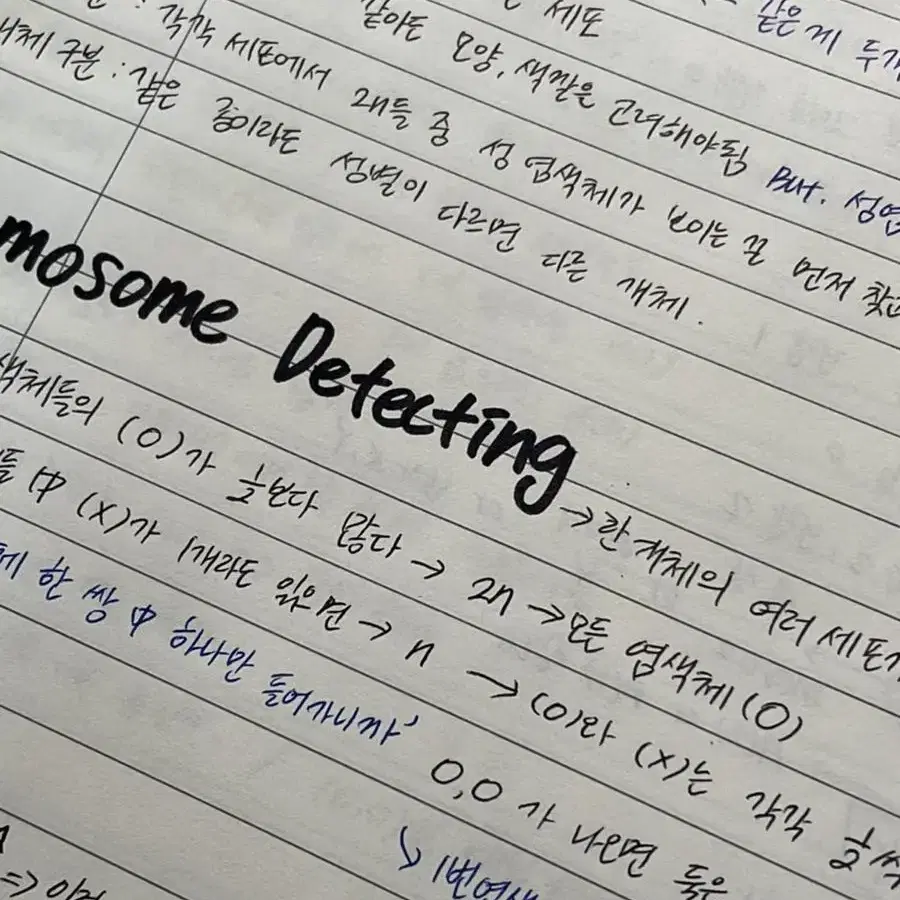 같은 게 두개
세포
같아도 모양, 색깔은 고려해야됨 But. 성염
: 각각 세포에서 걔들 중 성 염색체가 보이는 걸 먼저 찾고
개체 구분 : 같은 종이라도 성별이 다르면 다른 개체.
mosome Detecting
→ 한 개체의 여러 세포
색체들의 (O)가 1/2보다 많다 → 2n → 모든 염색체 (O)
들 中 (X)가 1개라도 있으면 → n → (O)와 (X)는 각각 1/2씩
한 쌍 中 하나만 들어가니까,
O,O 가 나오면 둘은
↳ 1번염색
=>